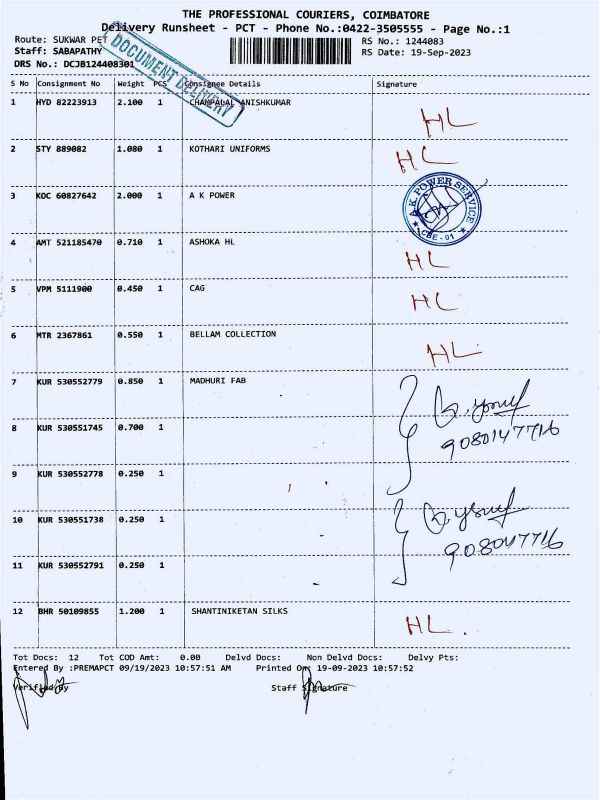 THE PROFESSIONAL COURIERS, COIMBATORE
Delivery Runsheet - PCT - Phone No.:0422-3505555 - Page No.:1
Route: SUKWAR PET
RS No.: 1244083
Staff: SABAPATHY
RS Date: 19-Sep-2023
DRS No.: DCJB124408301
DOCUMENT DELIVERY
S No Consignment No Weight PCS Consignee Details Signature
1 HYD 82223913 2.100 1 CHAMPALAL ANISHKUMAR HL
2 STY 889082 1.080 1 KOTHARI UNIFORMS HL
3 KOC 60827642 2.000 1 A K POWER
A.K. POWER SERVICE
CBE - 01
4 AMT 521185470 0.710 1 ASHOKA HL HL
5 VPM 5111900 0.450 1 CAG HL
6 MTR 2367861 0.550 1 BELLAM COLLECTION HL
7 KUR 530552779 0.850 1 MADHURI FAB
8 KUR 530551745 0.700 1 9080147716
9 KUR 530552778 0.250 1
10 KUR 530551738 0.250 1
11 KUR 530552791 0.250 1
12 BHR 50109855 1.200 1 SHANTINIKETAN SILKS HL.
Tot Docs: 12 Tot COD Amt: 0.00 Delvd Docs: Non Delvd Docs: Delvy Pts:
Entered By :PREMAPCT 09/19/2023 10:57:51 AM Printed On: 19-09-2023 10:57:52
Verified By Staff Signature